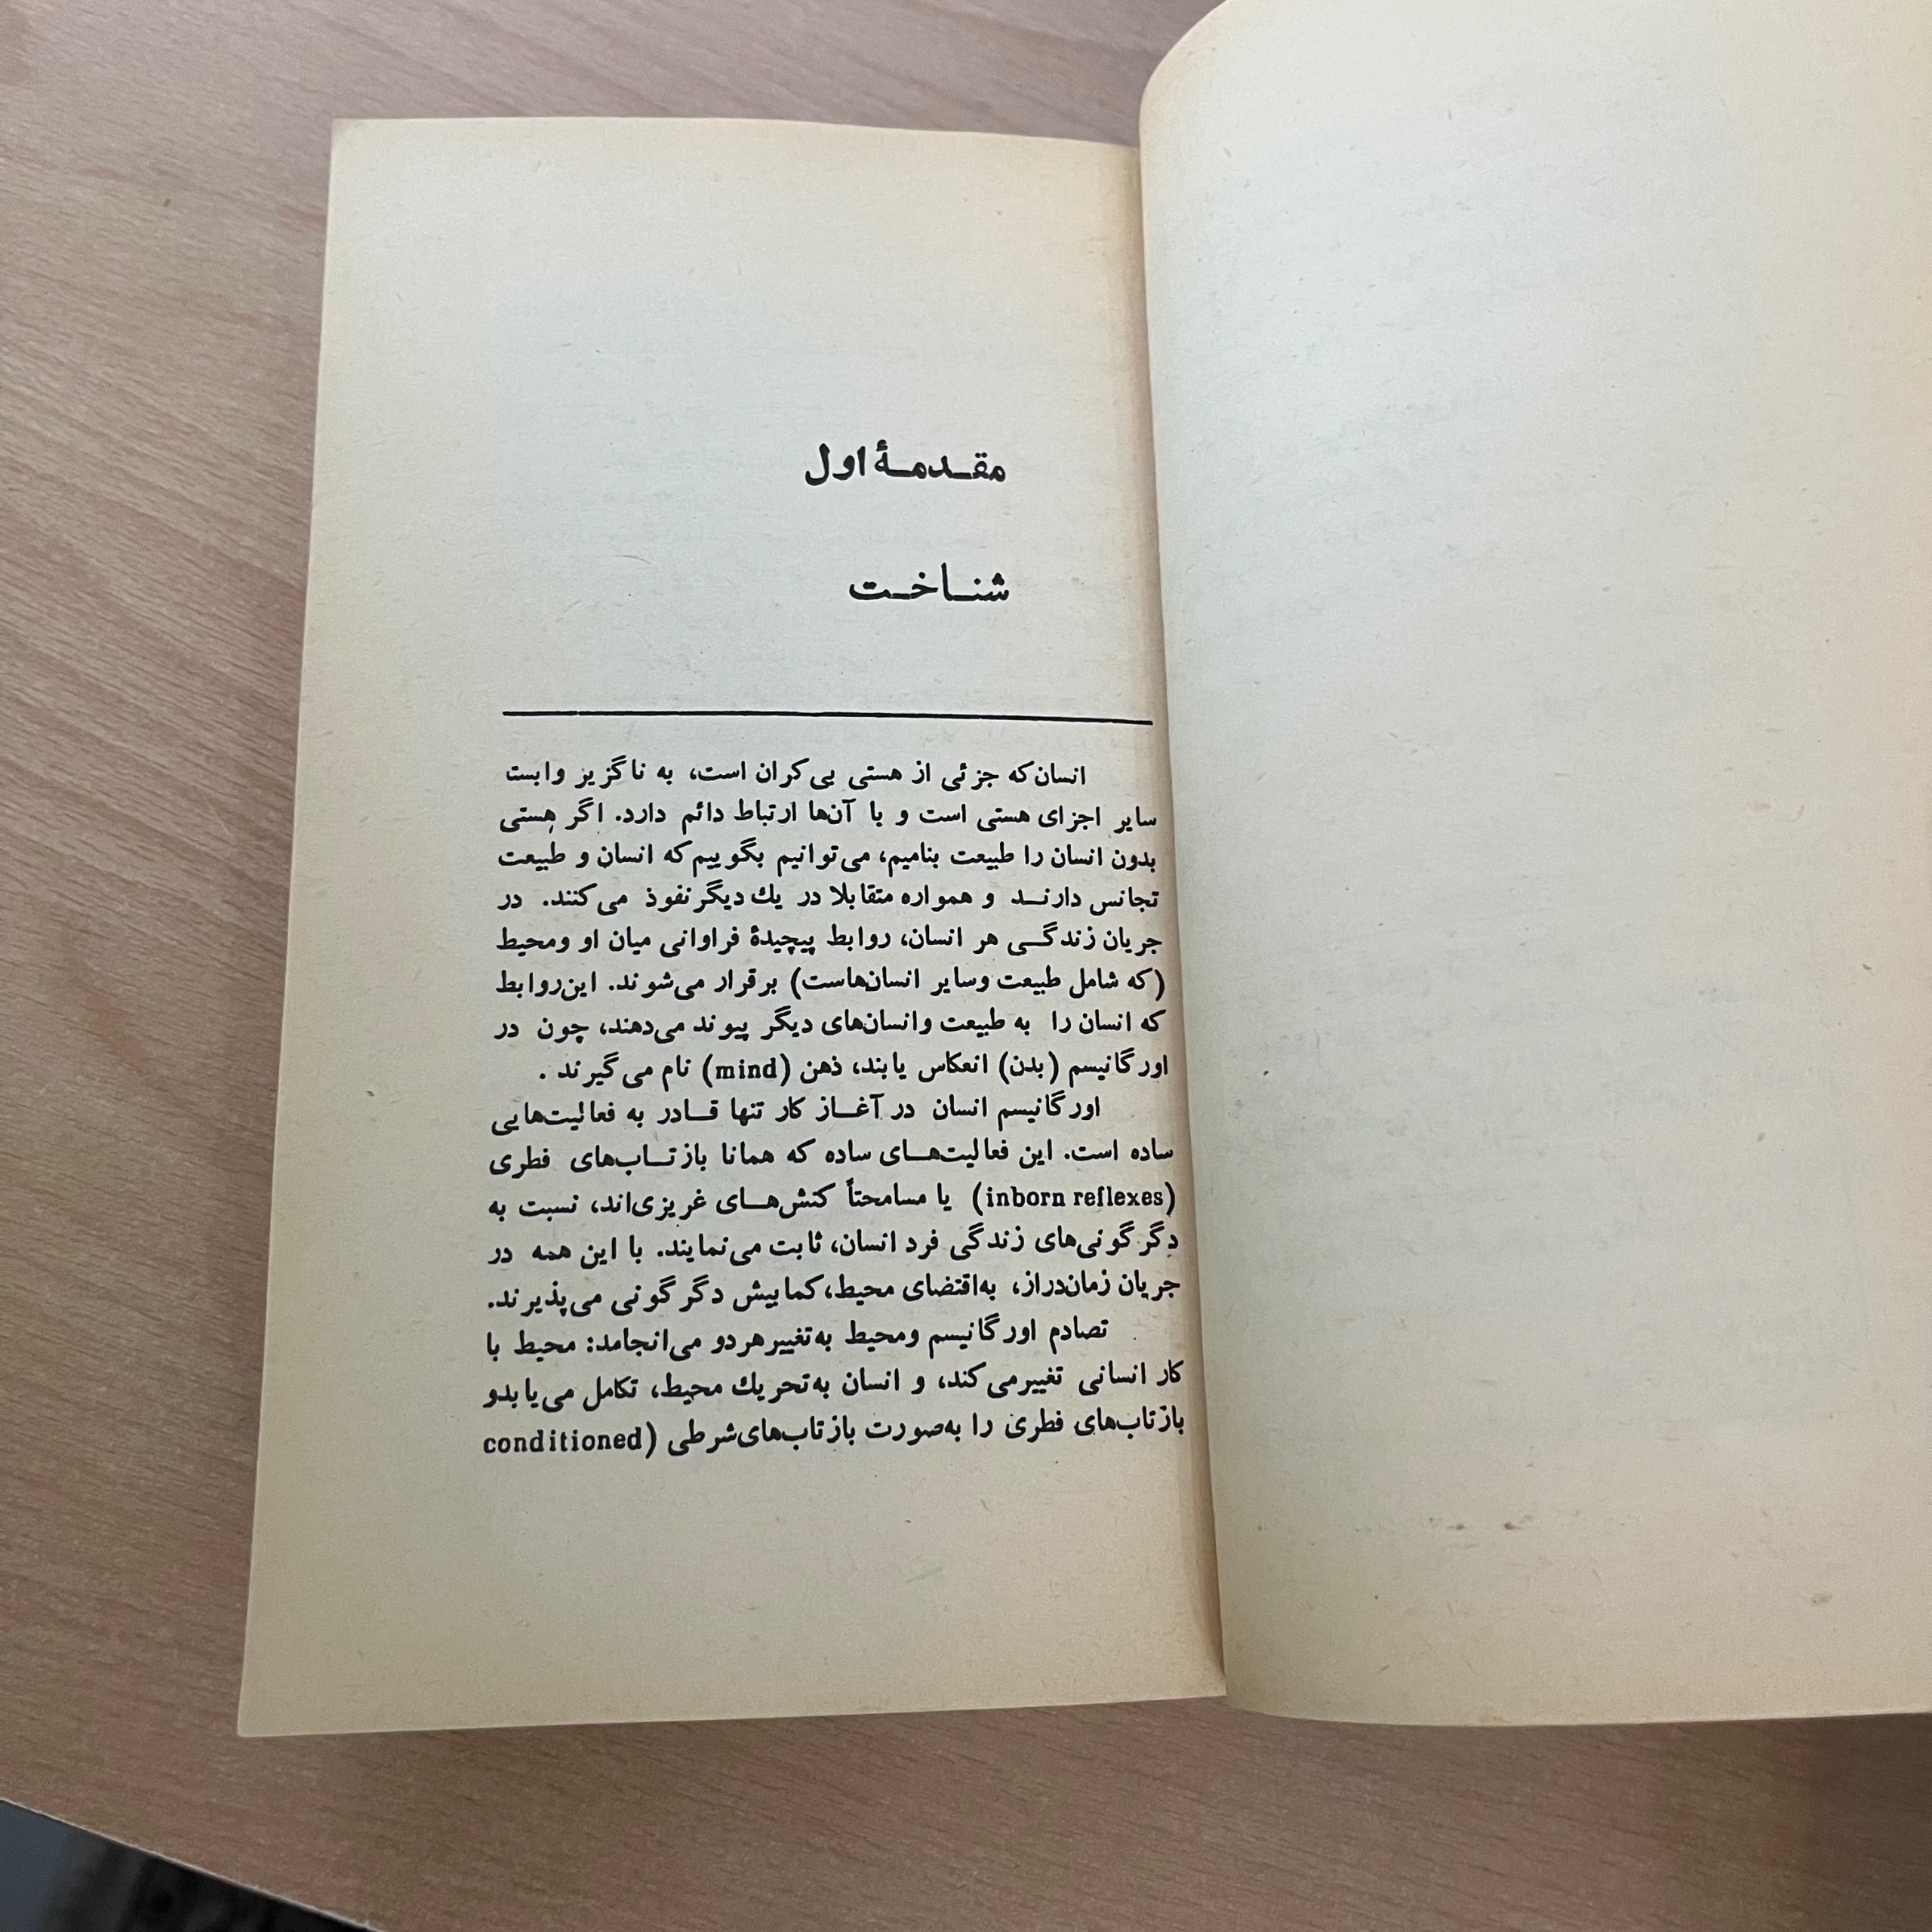 مقدمهٔ اول
شناخت
انسان‌که جزئی از هستی بی‌کران است، به ناگزیر وابست
سایر اجزای هستی است و با آن‌ها ارتباط دائم دارد. اگر هستی
بدون انسان را طبیعت بنامیم، می‌توانیم بگوییم‌که انسان و طبیعت
تجانس دارند و همواره متقابلا در یك دیگر نفوذ می‌کنند. در
جریان زندگی هر انسان، روابط پیچیدهٔ فراوانی میان او ومحیط
(که شامل طبیعت وسایر انسان‌هاست) برقرار می‌شوند. این‌روابط
که انسان را به طبیعت وانسان‌های دیگر پیوند می‌دهند، چون در
اورگانیسم (بدن) انعکاس یابند، ذهن (mind) نام می‌گیرند .
اورگانیسم انسان در آغاز کار تنها قادر به فعالیت‌هایی
ساده است. این فعالیت‌های ساده که همانا بازتاب‌های فطری
(inborn reflexes) یا مسامحتاً کنش‌های غریزی‌اند، نسبت به
دگرگونی‌های زندگی فرد انسان، ثابت می‌نمایند. با این همه در
جریان زمان‌دراز، به‌اقتضای محیط،کمابیش دگرگونی می‌پذیرند.
تصادم اورگانیسم ومحیط به‌تغییرهردو می‌انجامد: محیط با
کار انسانی تغییرمی‌کند، و انسان به‌تحریك محیط، تکامل می‌یابدو
بازتاب‌های فطری را به‌صورت بازتاب‌های‌شرطی (conditioned